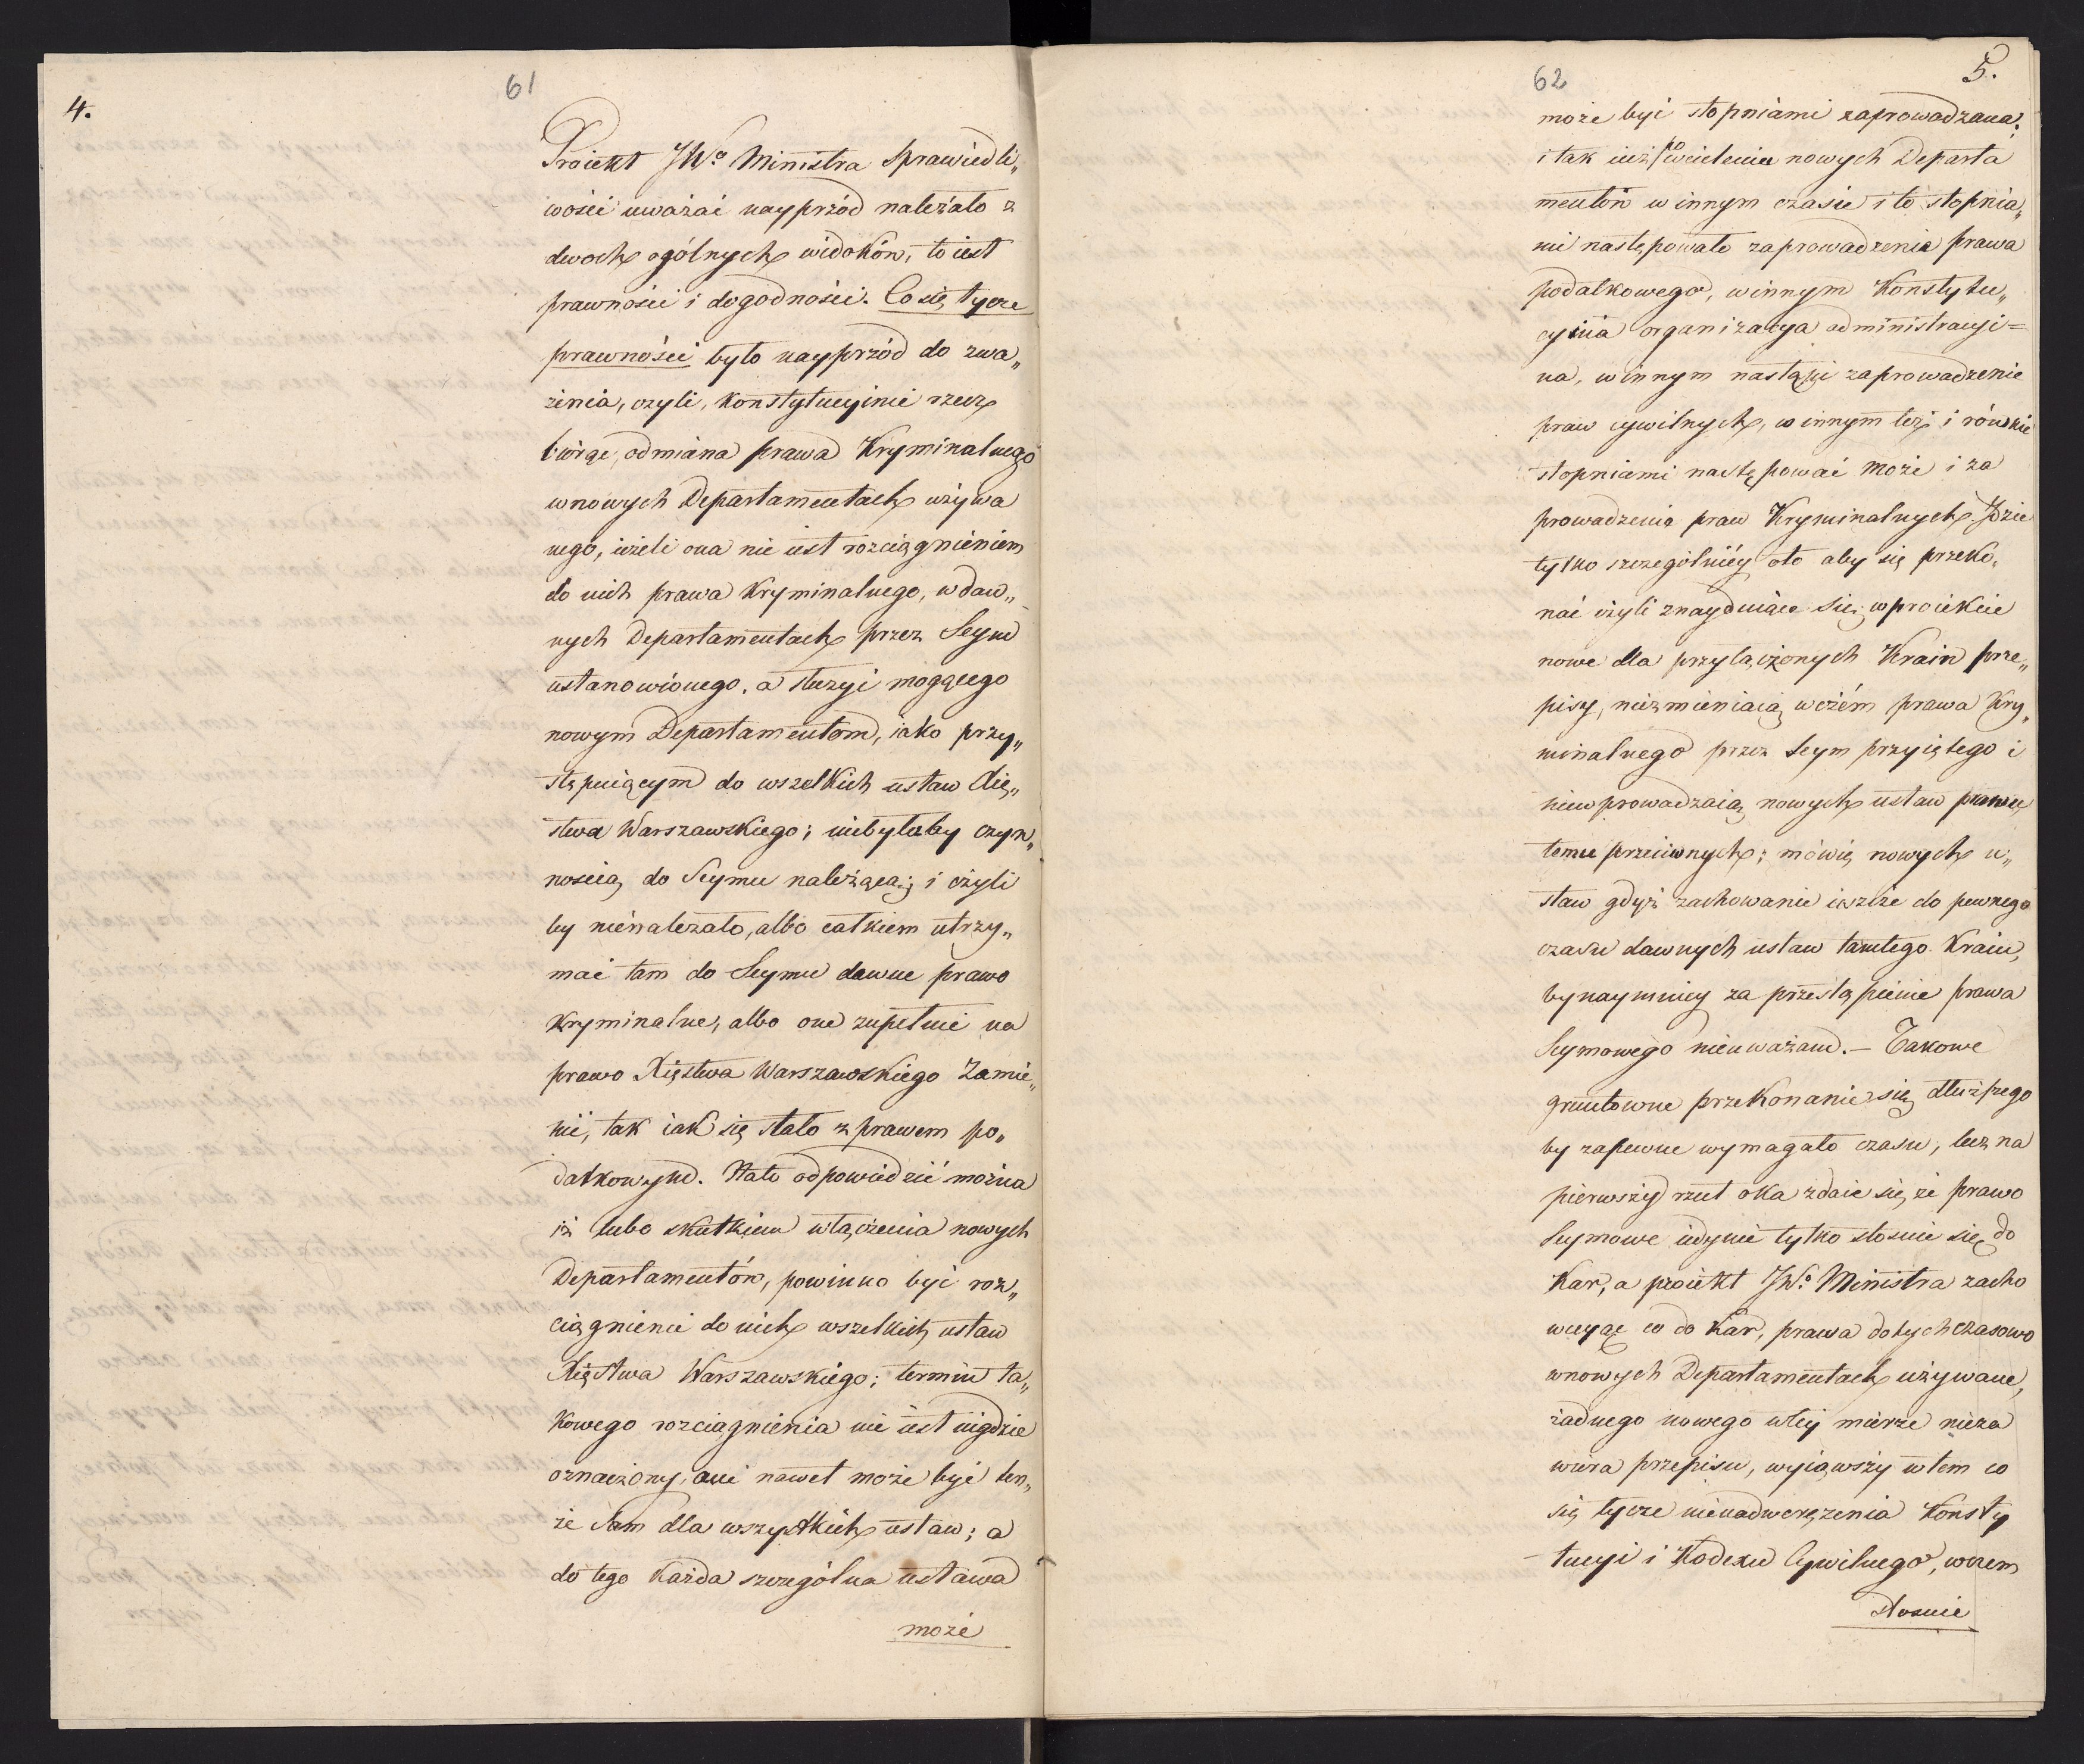 4.
61
Proiekt JWo Ministra Sprawiedli„
wości uważać nayprzód należało z
dwoch ogólnych widoków, to iest
prawności i dogodności. Co się tycze
prawności było nayprzód do zwa„
żenia, czyli, konstytucyinie rzecz
biorąc, odmiana prawa Kryminalnego
wnowych Departamentach używa
nego, ieżeli ona nie iest rozciągnieniem
do nich prawa kryminalnego, w daw„
nych Departamentach przez Seym
ustanowionego, a służyć mogącego
nowym Departamentom, iako przy„
stępuiącym do wszelkich ustaw Xię„
stwa Warszawskiego; niebyłaby czyn„
nością do Seymu należącą; i czyli
by nienależało, albo całkiem utrzy„
mać tam do Seymu dawne prawo
kryminalne, albo one zupełnie na
prawo Xięstwa Warszawskiego Zamie„
nić, tak iak się stało z prawem po„
datkowym. Nato odpowiedzić można
iż lubo skutkiem włączenia nowych
Departamentów, powinno być roz„
ciągnienie do nich wszelkich ustaw
Xięstwa Warszawskiego; termin ta„
kowego rozciągnienia nie iest nigdzie
oznaczony, ani nawet może być ten„
że Sam dla wszystkich ustaw; a
do tego każda szczególna ustawa
może
62
5.
może być stopniami zaprowadzana;
i tak iuż po wcieleniu nowych Departa
mentów w innym czasie i to stopnia„
mi następowało zaprowadzenie prawa
podatkowego, winnym Konstytu„
cyina organizacya administracyi=
na, winnym nastąpi zaprowadzenie
praw cywilnych, w innym też i równie
stopniami następować może i za
prowadzenie praw Kryminalnych. Idzie
tylko szczególniéy oto aby się przeko„
nać czyli znayduiące się w proiekcie
nowe dla przyłączonych Krain prze„
pisy, niezmieniaią wczém prawa Kry„
minalnego przez Seym przyiętego i
niewprowadzaią nowych ustaw prawu
temu przeciwnych; mówię nowych u„
staw gdyż zachowanie ieszcze do pewnego
czasu dawnych ustaw tamtego Kraiu,
bynaymniey za przestąpienie prawa
Seymowego nieuważam. — Takowe
gruntowne przekonanie się dłuższego
by zapewne wymagało czasu, lecz na
pierwszy rzut oka zdaie się, że prawo
Seymowe iedynie tylko stosuie się do
Kar, a proiekt JWo Ministra zacho
wuyąc co do Kar, prawa dotychczasowo
wnowych Departamentach używane,
żadnego nowego wtéy mierze nieza
wiera przepisu, wyiąwszy wtem co
się tycze nienadwerężenia Konsty
tucyi i Kodexu Cywilnego, wczem
stosuie